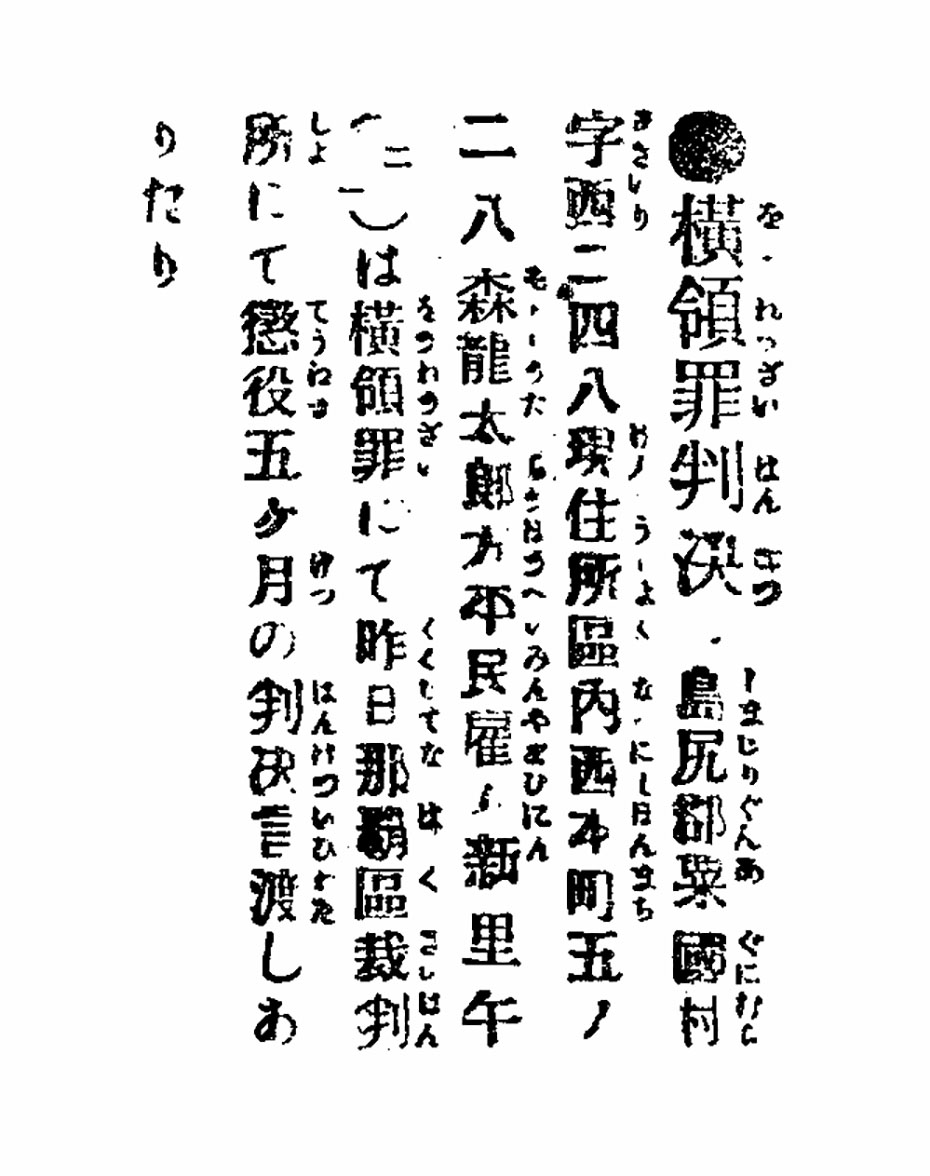 ●橫領罪判決 島尻郡粟國村
字西二四八現住所區內西本町五ノ
二八森龍太郎方平民雇人新里午
(二一)は橫領罪にて昨日那覇區裁判
所にて懲役五ケ月の判決言渡しあ
りたり